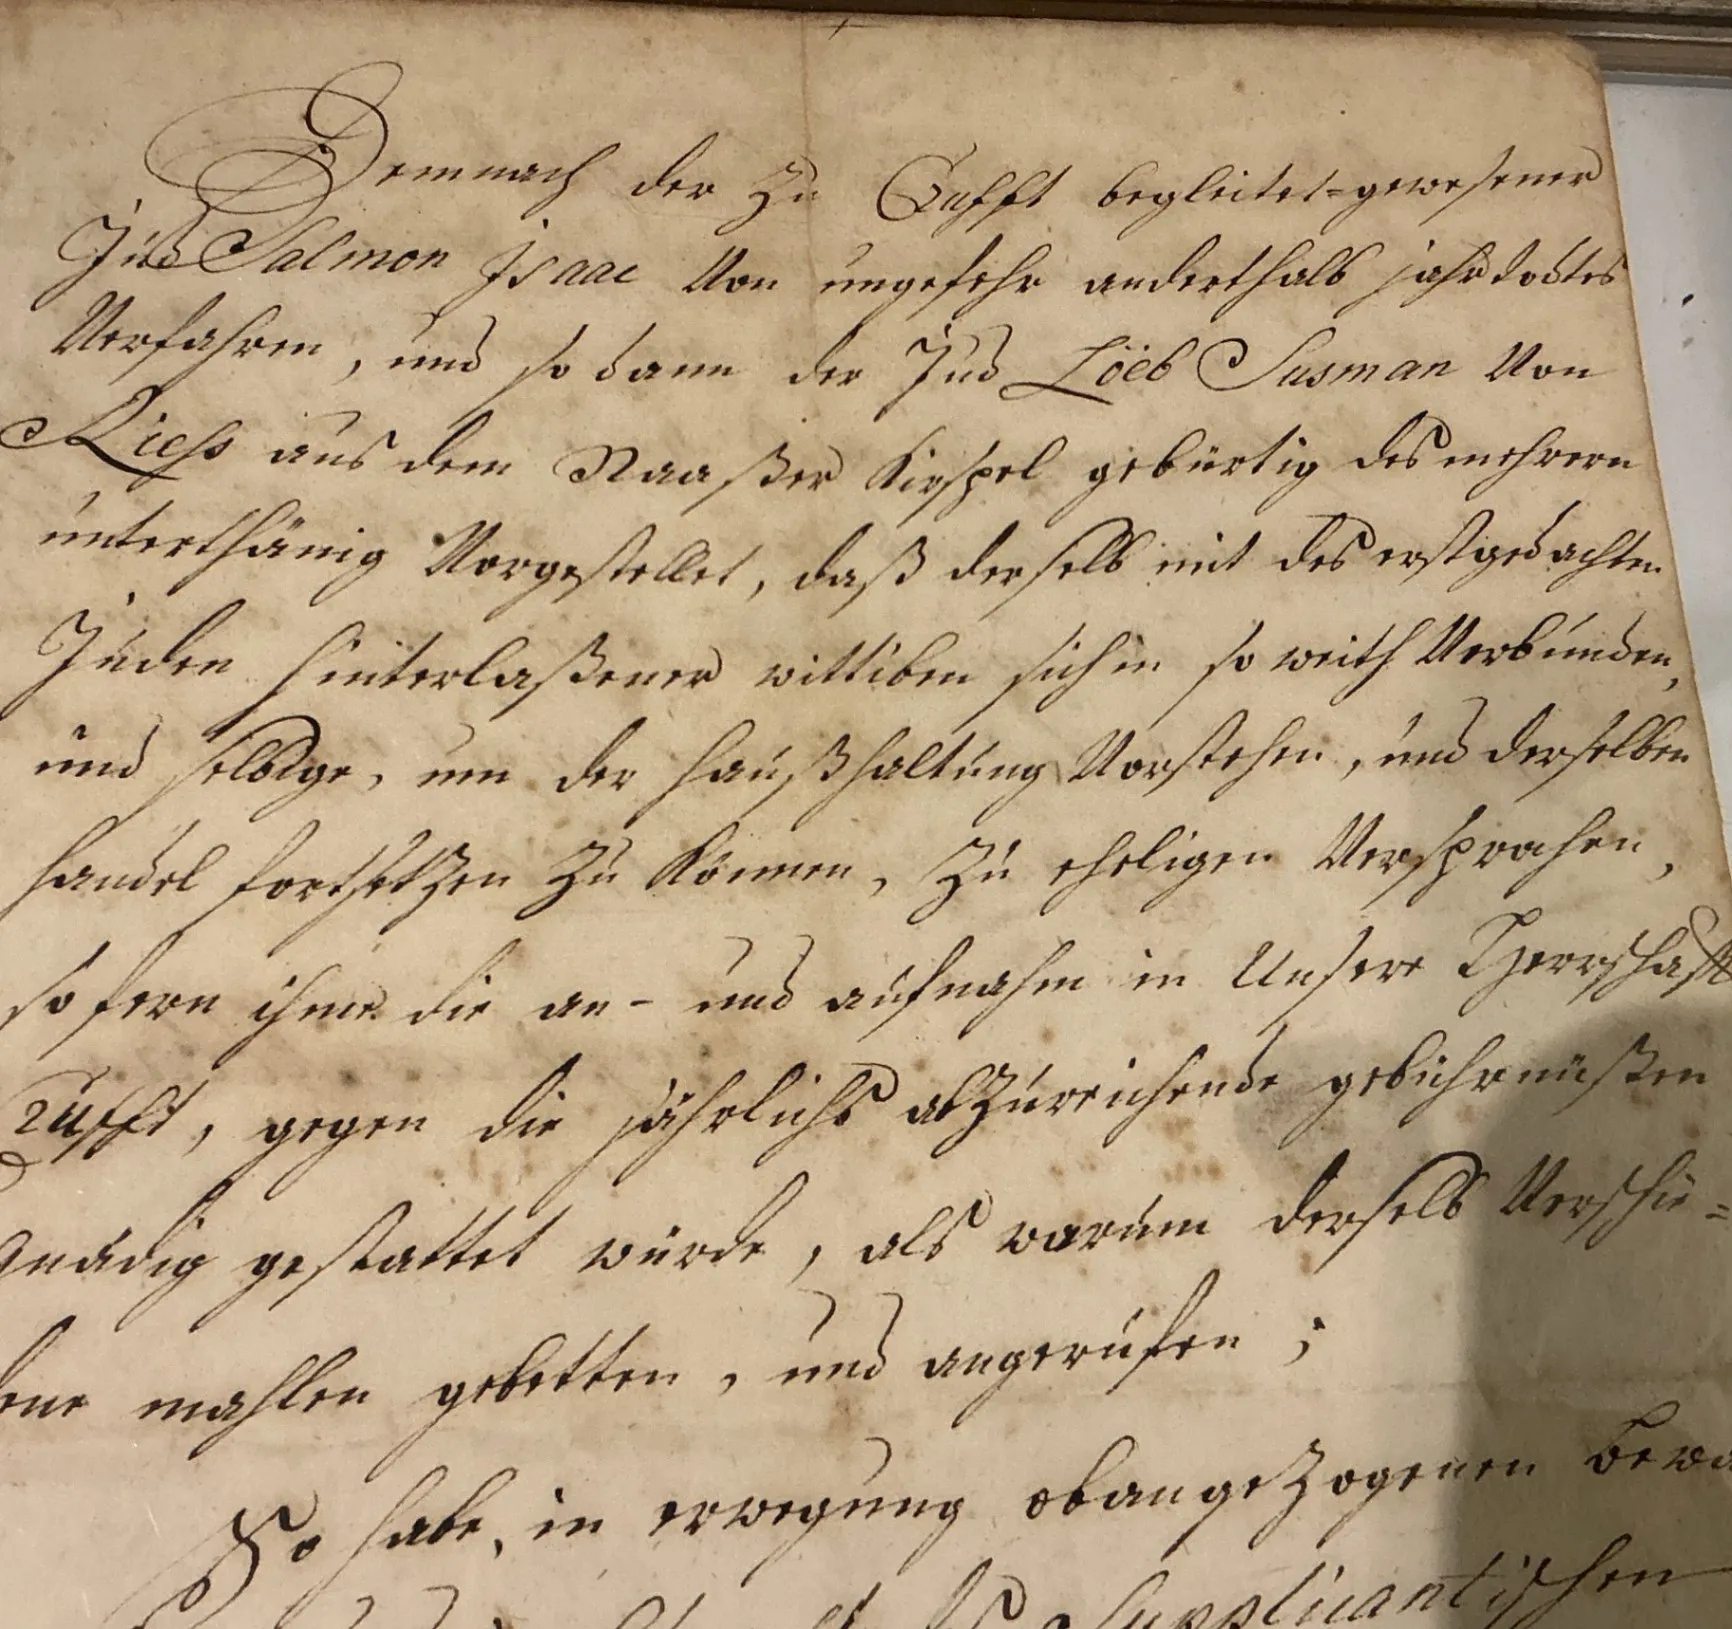 Demnach der zu Crufft begleitet-gewesener
Jud Salmon Isaac Von ungefehr anderthalb jahr todtes
Verfahren, und so dann der Jud Löeb Susman Von
aus dem Kirspel gebürtig des mehrern
unterthänig Vorgestellet, daß derselb mit des erstgedachten
Juden hinterlaßener wittiben sich in so weith Verbunden,
und selbige, um der haußhaltung Vorstehen, und derselben
handel fortsetzen zu können, zu eheligen Versprochen,
so fern ihme die an- und aufnahm in Unsere Herrschafft
Crufft, gegen die jährlichs abzureichende gebührnüßen
gnädig gestattet würde, als warum derselb Verschie-
dene mahlen gebetten, und angerufen;
So habe, in erwegung obangezogenen
Supplicantischen